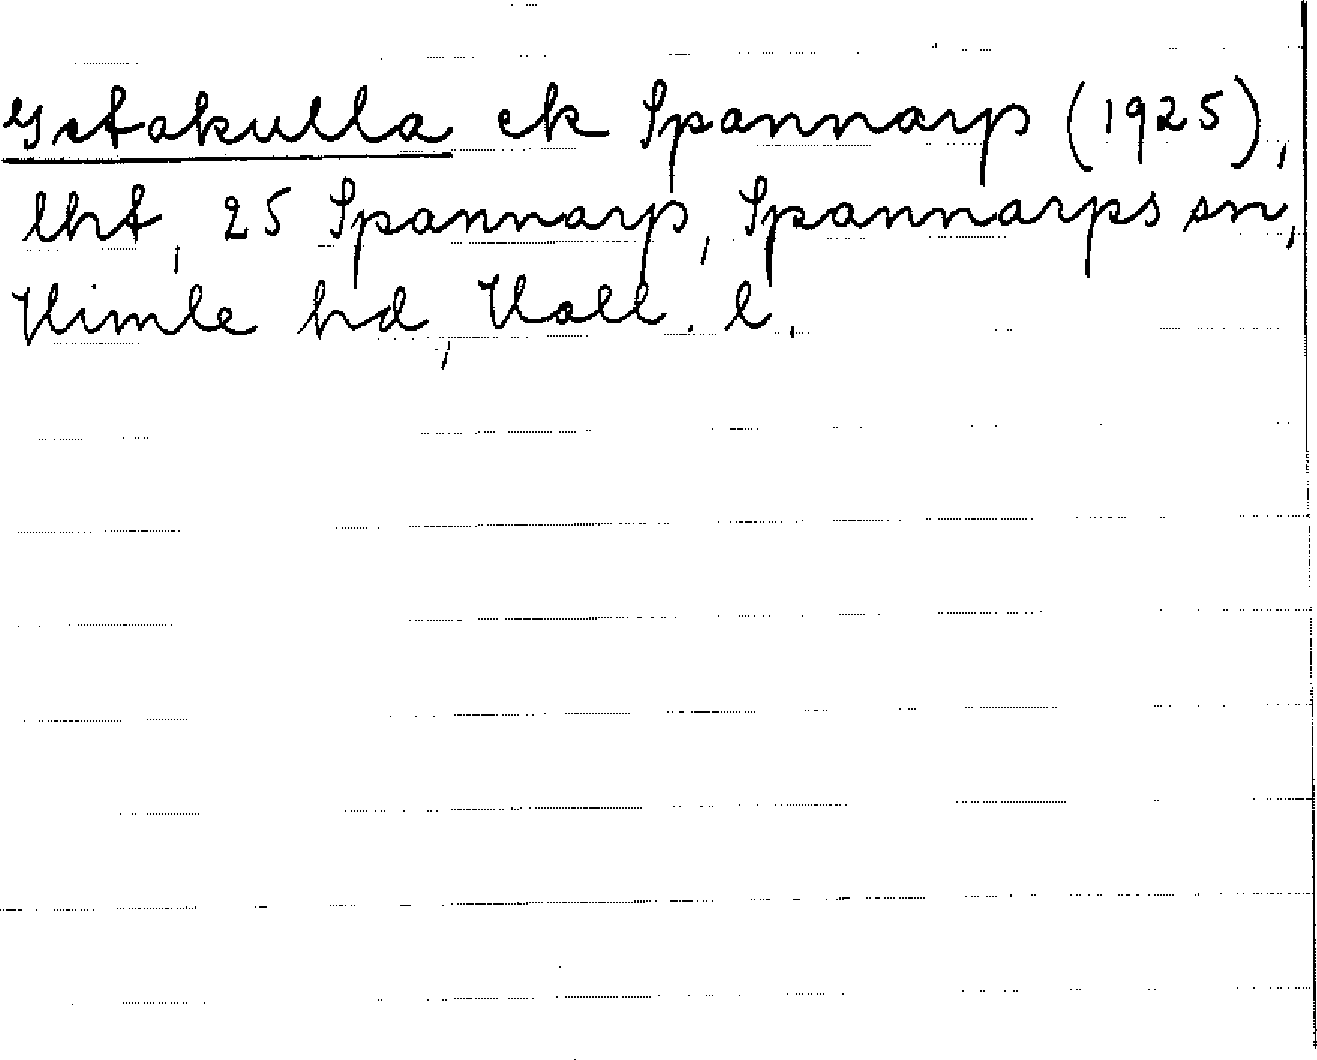 Ystakulla ek Spannarp (1925),
lht, 25 Spannarp, Spannarps sn,
Himle hd, Hall. l.